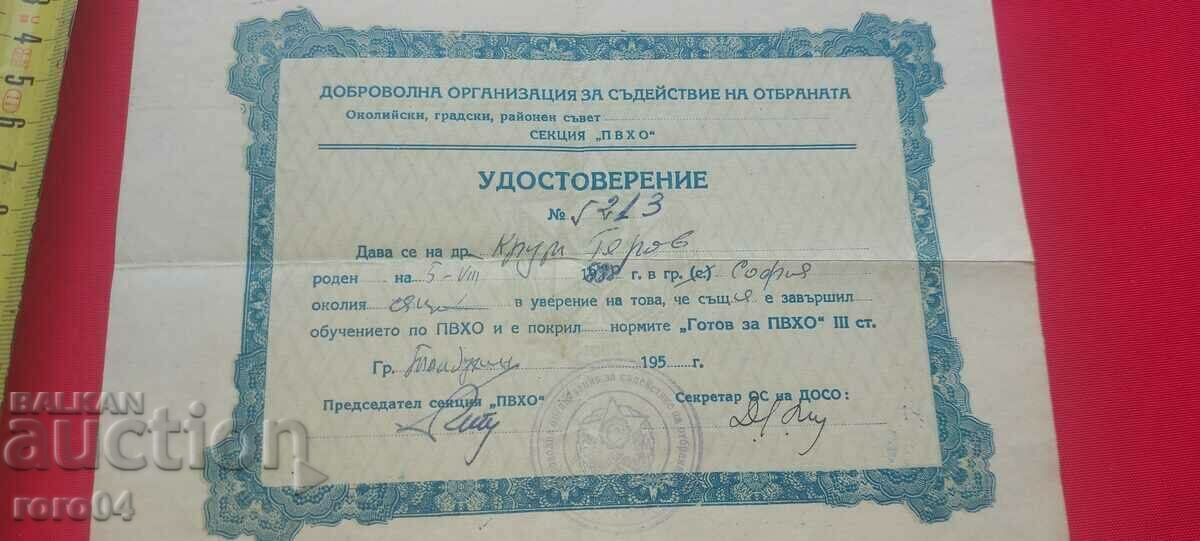 ДОБРОВОЛНА ОРГАНИЗАЦИЯ ЗА СЪДЕЙСТВИЕ НА ОТБРАНАТА
Околийски, градски, районен съвет
СЕКЦИЯ „ПВХО“
УДОСТОВЕРЕНИЕ
№ 5213
Дава се на др. Геров
роден на 5-VIII г. в гр. (с.) София
околия в уверение на това, че същия е завършил
обучението по ПВХО и е покрил нормите „Готов за ПВХО“ III ст.
Гр. Толбухин 195 г.
Председател секция „ПВХО“ Секретар ОС на ДОСО:
организация за съдействие на отбраната
BALKAN
auction
roro04
4
5
6
7